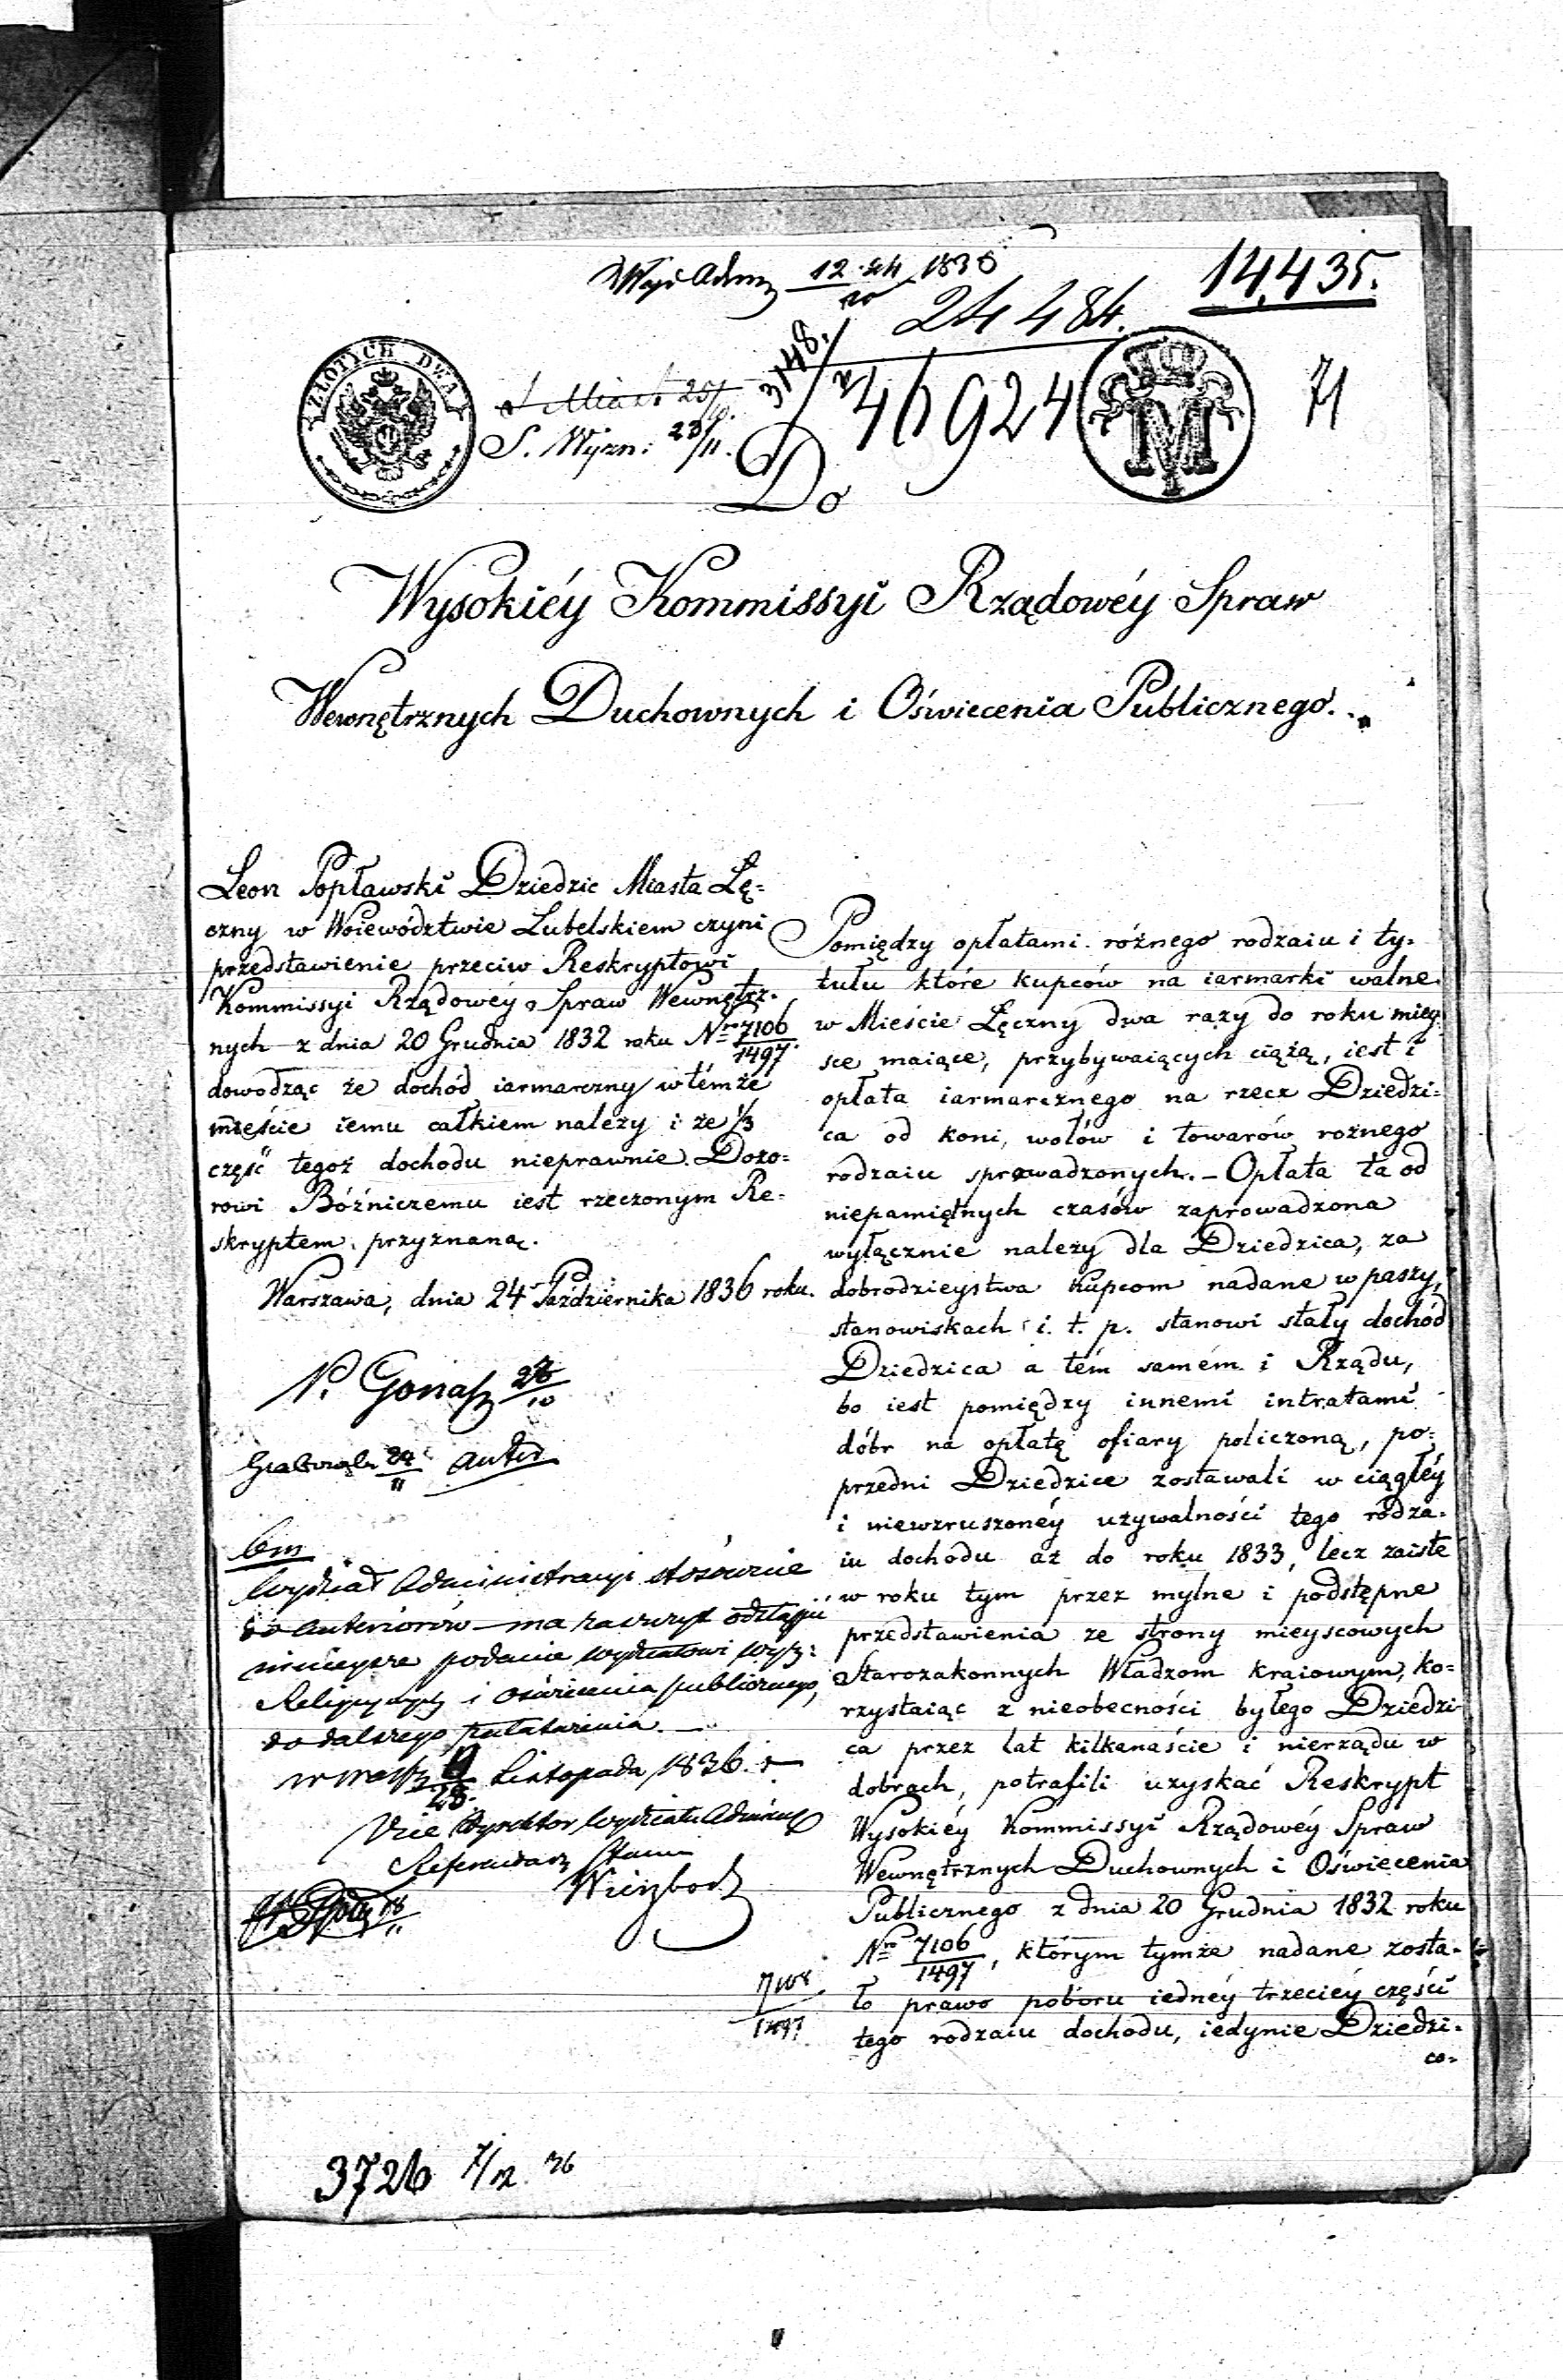 14,435.
12
24 484.
3148.
46924
71
ZŁOTYCH DWA
M
S. Wyzn: 23/11.
Do
Wysokiéy Kommissyi Rządowéy Spraw
Wewnętrznych Duchownych i Oświecenia Publicznego.
Leon Popławski Dziedzic Miasta Łę=
czny w Woiewództwie Lubelskiem czyni
przedstawienie przeciw Reskryptowi
Kommissyi Rządowéy Spraw Wewnętrz=
nych z dnia 20 Grudnia 1832 roku Nro 7106/1497.
dowodząc że dochód iarmarczny w témże
mieście iemu całkiem należy i że 1/3
część tegoż dochodu nieprawnie Dozo=
rowi Bóźniczemu iest rzeczonym Re=
skryptem przyznaną.
Warszawa, dnia 24 Października 1836 roku.
Wydział Administracyi stósownie
do anteriorów ma zaszczyt odstąpić
ninieysze podanie Wydziałowi Wyzn:
Religiynych i Oświecenia publicznego,
do dalszego załatwienia.
Listopada 1836. r
Vice Dyrektor Wydziału
Referendarz Stanu
7106/1497
3726 7/12 36
Pomiędzy opłatami różnego rodzaiu i ty=
tułu które kupców na iarmarki walne
w Mieście Łęczny dwa razy do roku miey=
sce maiące, przybywaiących ciążą, iest i
opłata iarmarcznego na rzecz Dziedzi=
ca od koni, wołów i towarów rożnego
rodzaiu sprowadzonych. – Opłata ta od
niepamiętnych czasów zaprowadzona
wyłącznie należy dla Dziedzica, za
dobrodzieystwa kupcom nadane w paszy,
stanowiskach i. t. p. stanowi stały dochód
Dziedzica a tém samém i Rządu,
bo iest pomiędzy innemi intratami
dóbr na opłatę ofiary policzoną, po=
przedni Dziedzice zostawali w ciągłéy
i niewzruszonéy używalności tego rodza=
iu dochodu aż do roku 1833, lecz zaiste
w roku tym przez mylne i podstępne
przedstawienia ze strony mieyscowych
Starozakonnych Władzom kraiowym, ko=
rzystaiąc z nieobecności byłego Dziedzi
ca przez lat kilkanaście i nierządu w
dobrach, potrafili uzyskać Reskrypt
Wysokiéy Kommissyi Rządowéy Spraw
Wewnętrznych Duchownych i Oświecenia
Publicznego z dnia 20 Grudnia 1832 roku
Nro 7106/1497, którym tymże nadane zosta=
ło prawo poboru iednéy trzeciéy części
tego rodzaiu dochodu, iedynie Dziedzi=
co=